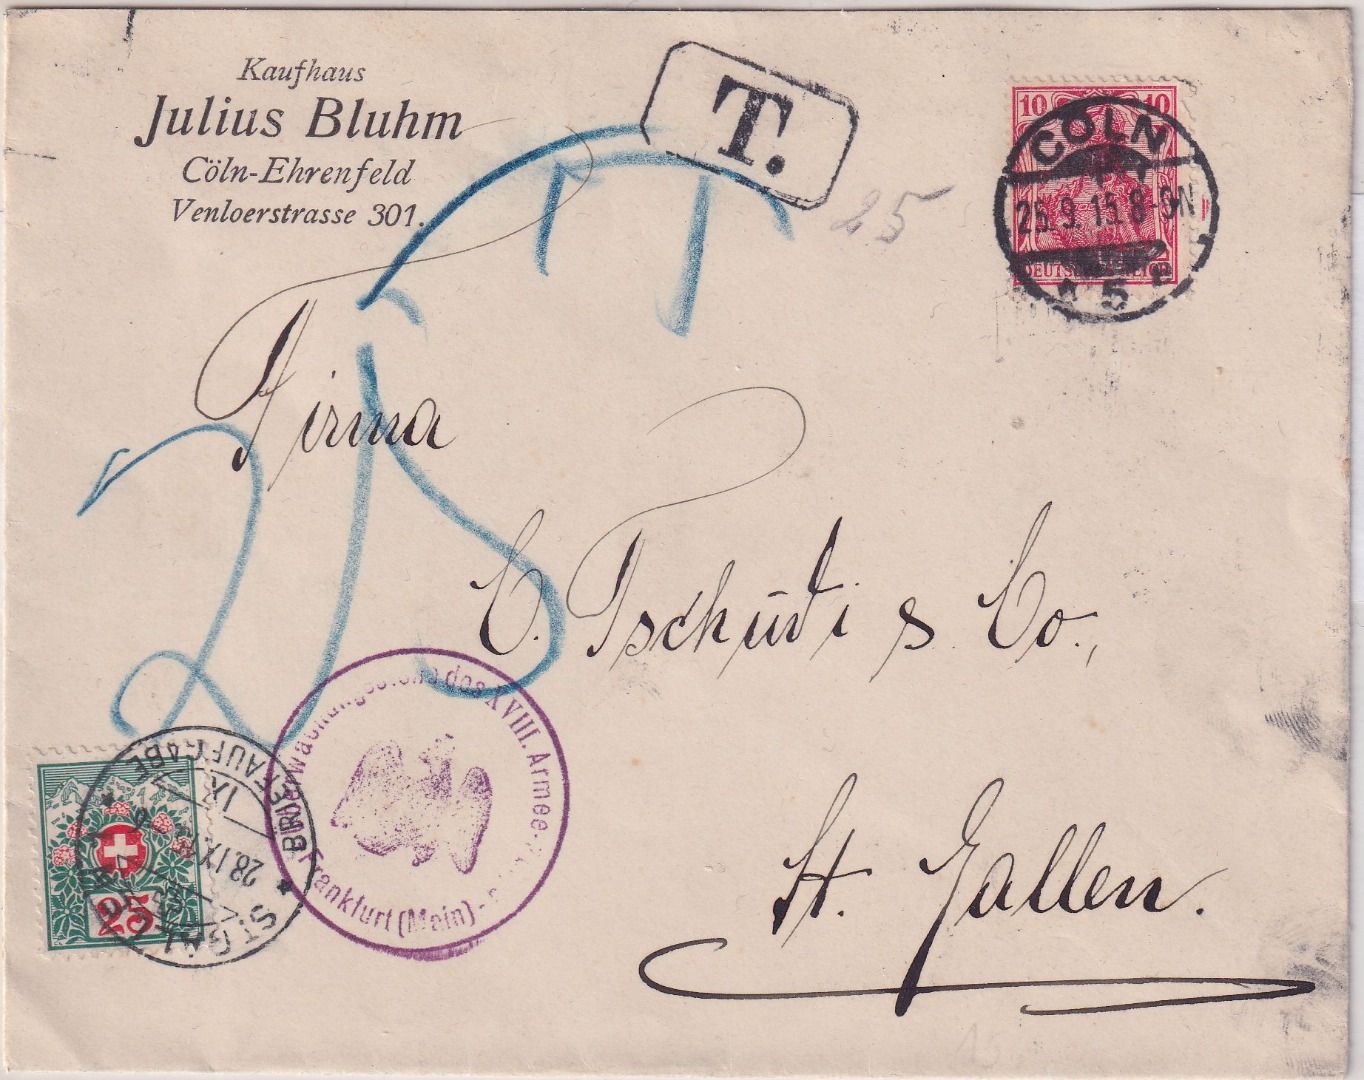 Kaufhaus
Julius Bluhm
Cöln-Ehrenfeld
Venloerstrasse 301.
T.
25
10 10
CÖLN
25.9.15.8-9N
* 5 e
T
25
Firma
C. Tschudi & Co.,
St. Gallen.
des XVIII. Armee-
Frankfurt (Main)-
BRIEFAUFGABE
28.IX
ST. GAL
25